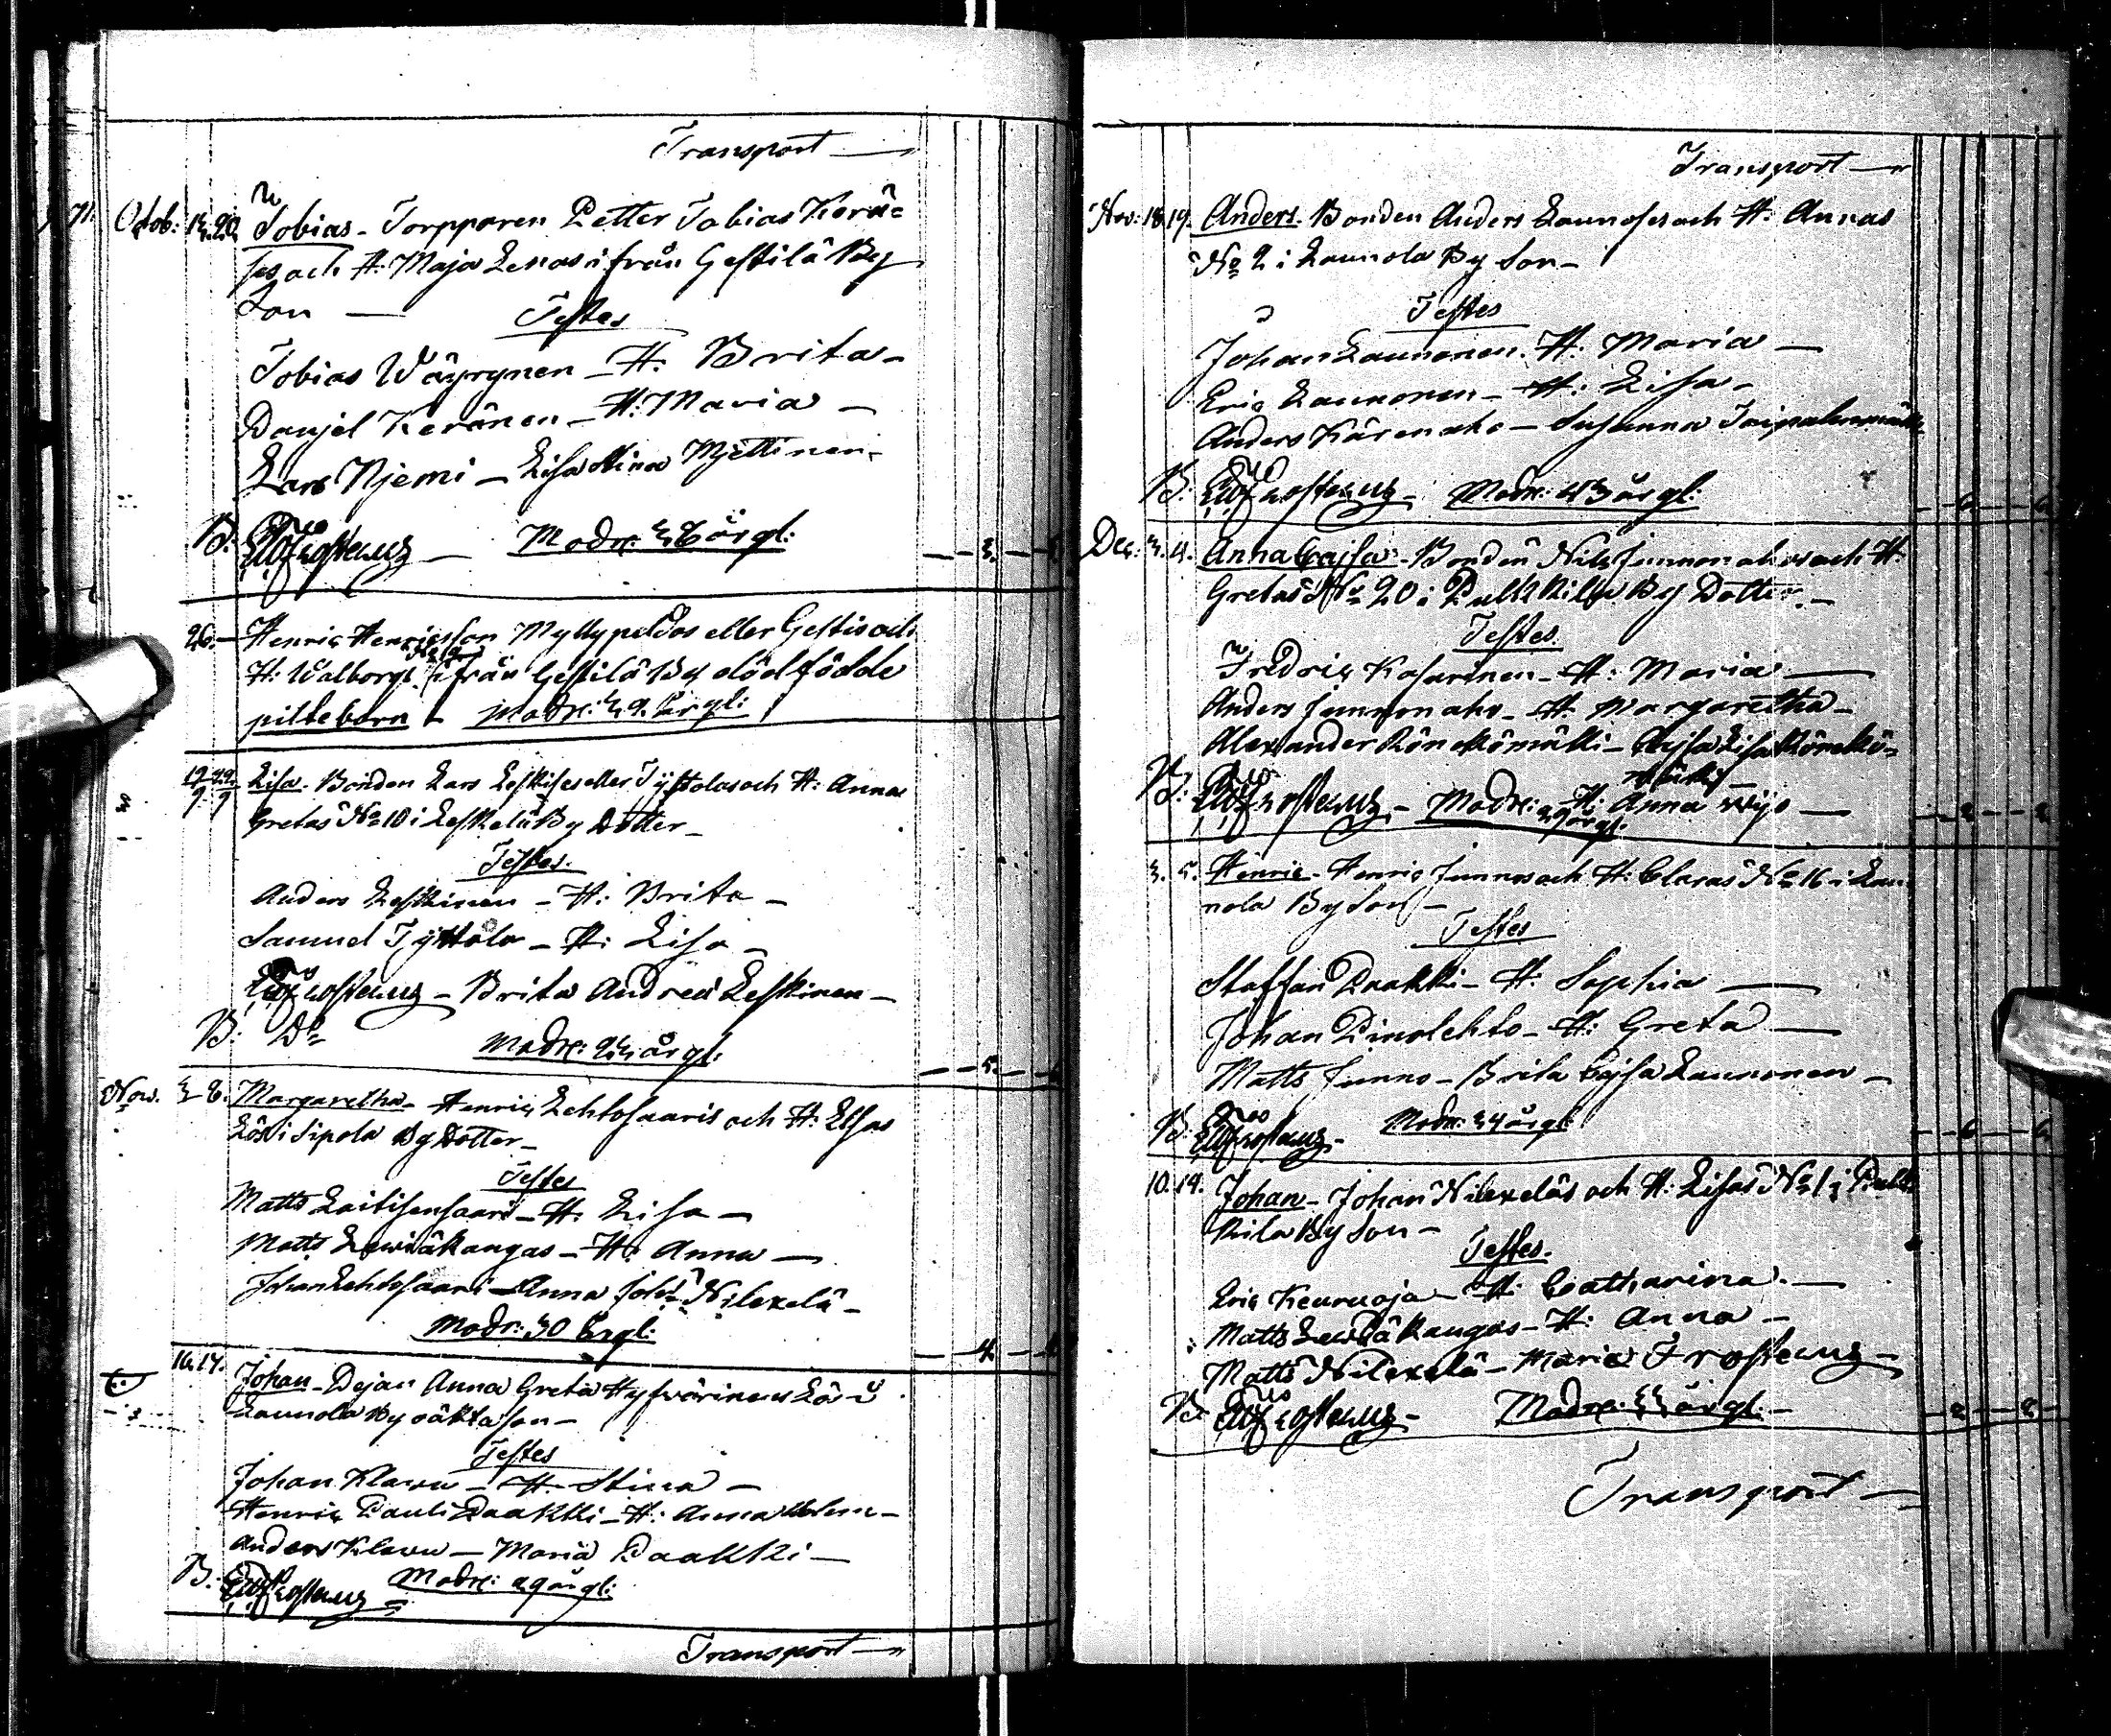 Transport
Octob: 14. 20. Tobias - Torpparen Petter Tobias Kerä=
ses och H: Maja Lenas ifrån Gestilä By
Son —
Testes
Tobias Wäyrynen - H: Brita -
Danjel Keränen - H: Maria -
Lars Njemi - Lisa Stina Mjettinen -
B: - Modr: 36 årgl:
26. - Henric Henricsson Myllypeldos eller Gestis och
H: Walborgs ifrån Gestilä By dödfödde
pilteborn - Modr: 39. årgl:
Lisa. Bonden Lars Leskises eller Tyttolas och H: Anna
Gretas No 10 i Leskelä By Dotter -
Testes.
Anders Leskinen - H: Brita -
Samuel Tyttölä - H: Lisa -
- Brita Andreæ Leskinen -
B: Do Modr: årgl:
Nov. 3. 8. Margaretha - Henric Lehtosaaris och H: Elsas
Lös i Sipola By Dotter -
Testes
Matts Laitisensaari - H: Lisa -
Matts Lewiäkangas - H: Anna -
Johan Lehtosaari - Anna Joh: Nilexelä -
Modr: 30 årgl:
16. 17. Johan - Pejan Anna Greta Hyfvärinens Lös i
Launola By oäkta son -
Testes
Johan Klawu - H: Stina -
Henric Pauli Paakki - H: Anna Helen -
Anders Klawu - Maria Paakki -
B: Modr: 29 årgl:
Transport
Transport
Nov: 18. 19. Anders. Bonden Anders Launoses och H: Annas
No 2 i Launola By Son -
Testes
Johan Launonen. H: Maria -
Eric Launonen - H: Lisa -
Anders Kärenaho - Susanna
B: Modr: 43 årgl:
Dec: 3. 4. Anna Cajsa - Bonden Nils Junnonahos och H:
Gretas No 20 i Pulkkila By Dotter. -
Testes.
Fredric Kasarinen - H: Maria -
Anders Junnonaho - H: Margaretha -
Alexander Könekömäki - Cajsa Lisa Könekö=
mäki -
B: - Modr: 29 årgl: H: Anna Wijo -
3. 5. Henric - Henric Junnos och H: Claras No 16 i Lau
nola By Son -
Testes
Staffan Paakki - H: Sophia -
Johan Pinolehto - H: Greta -
Matts Junno - Brita Cajsa Launonen -
B: Modr: 34 årgl:
10. 14. Johan - Johan Nilexeläs och H: Lisas No 1 i Pulk
kila By Son -
Testes.
Eric Keuruoja - H: Catharina. -
Matts Lewiäkangas - H: Anna -
Matts Nilexelä - Maria Frosterus -
B: Modr: 33 årgl: -
Transport